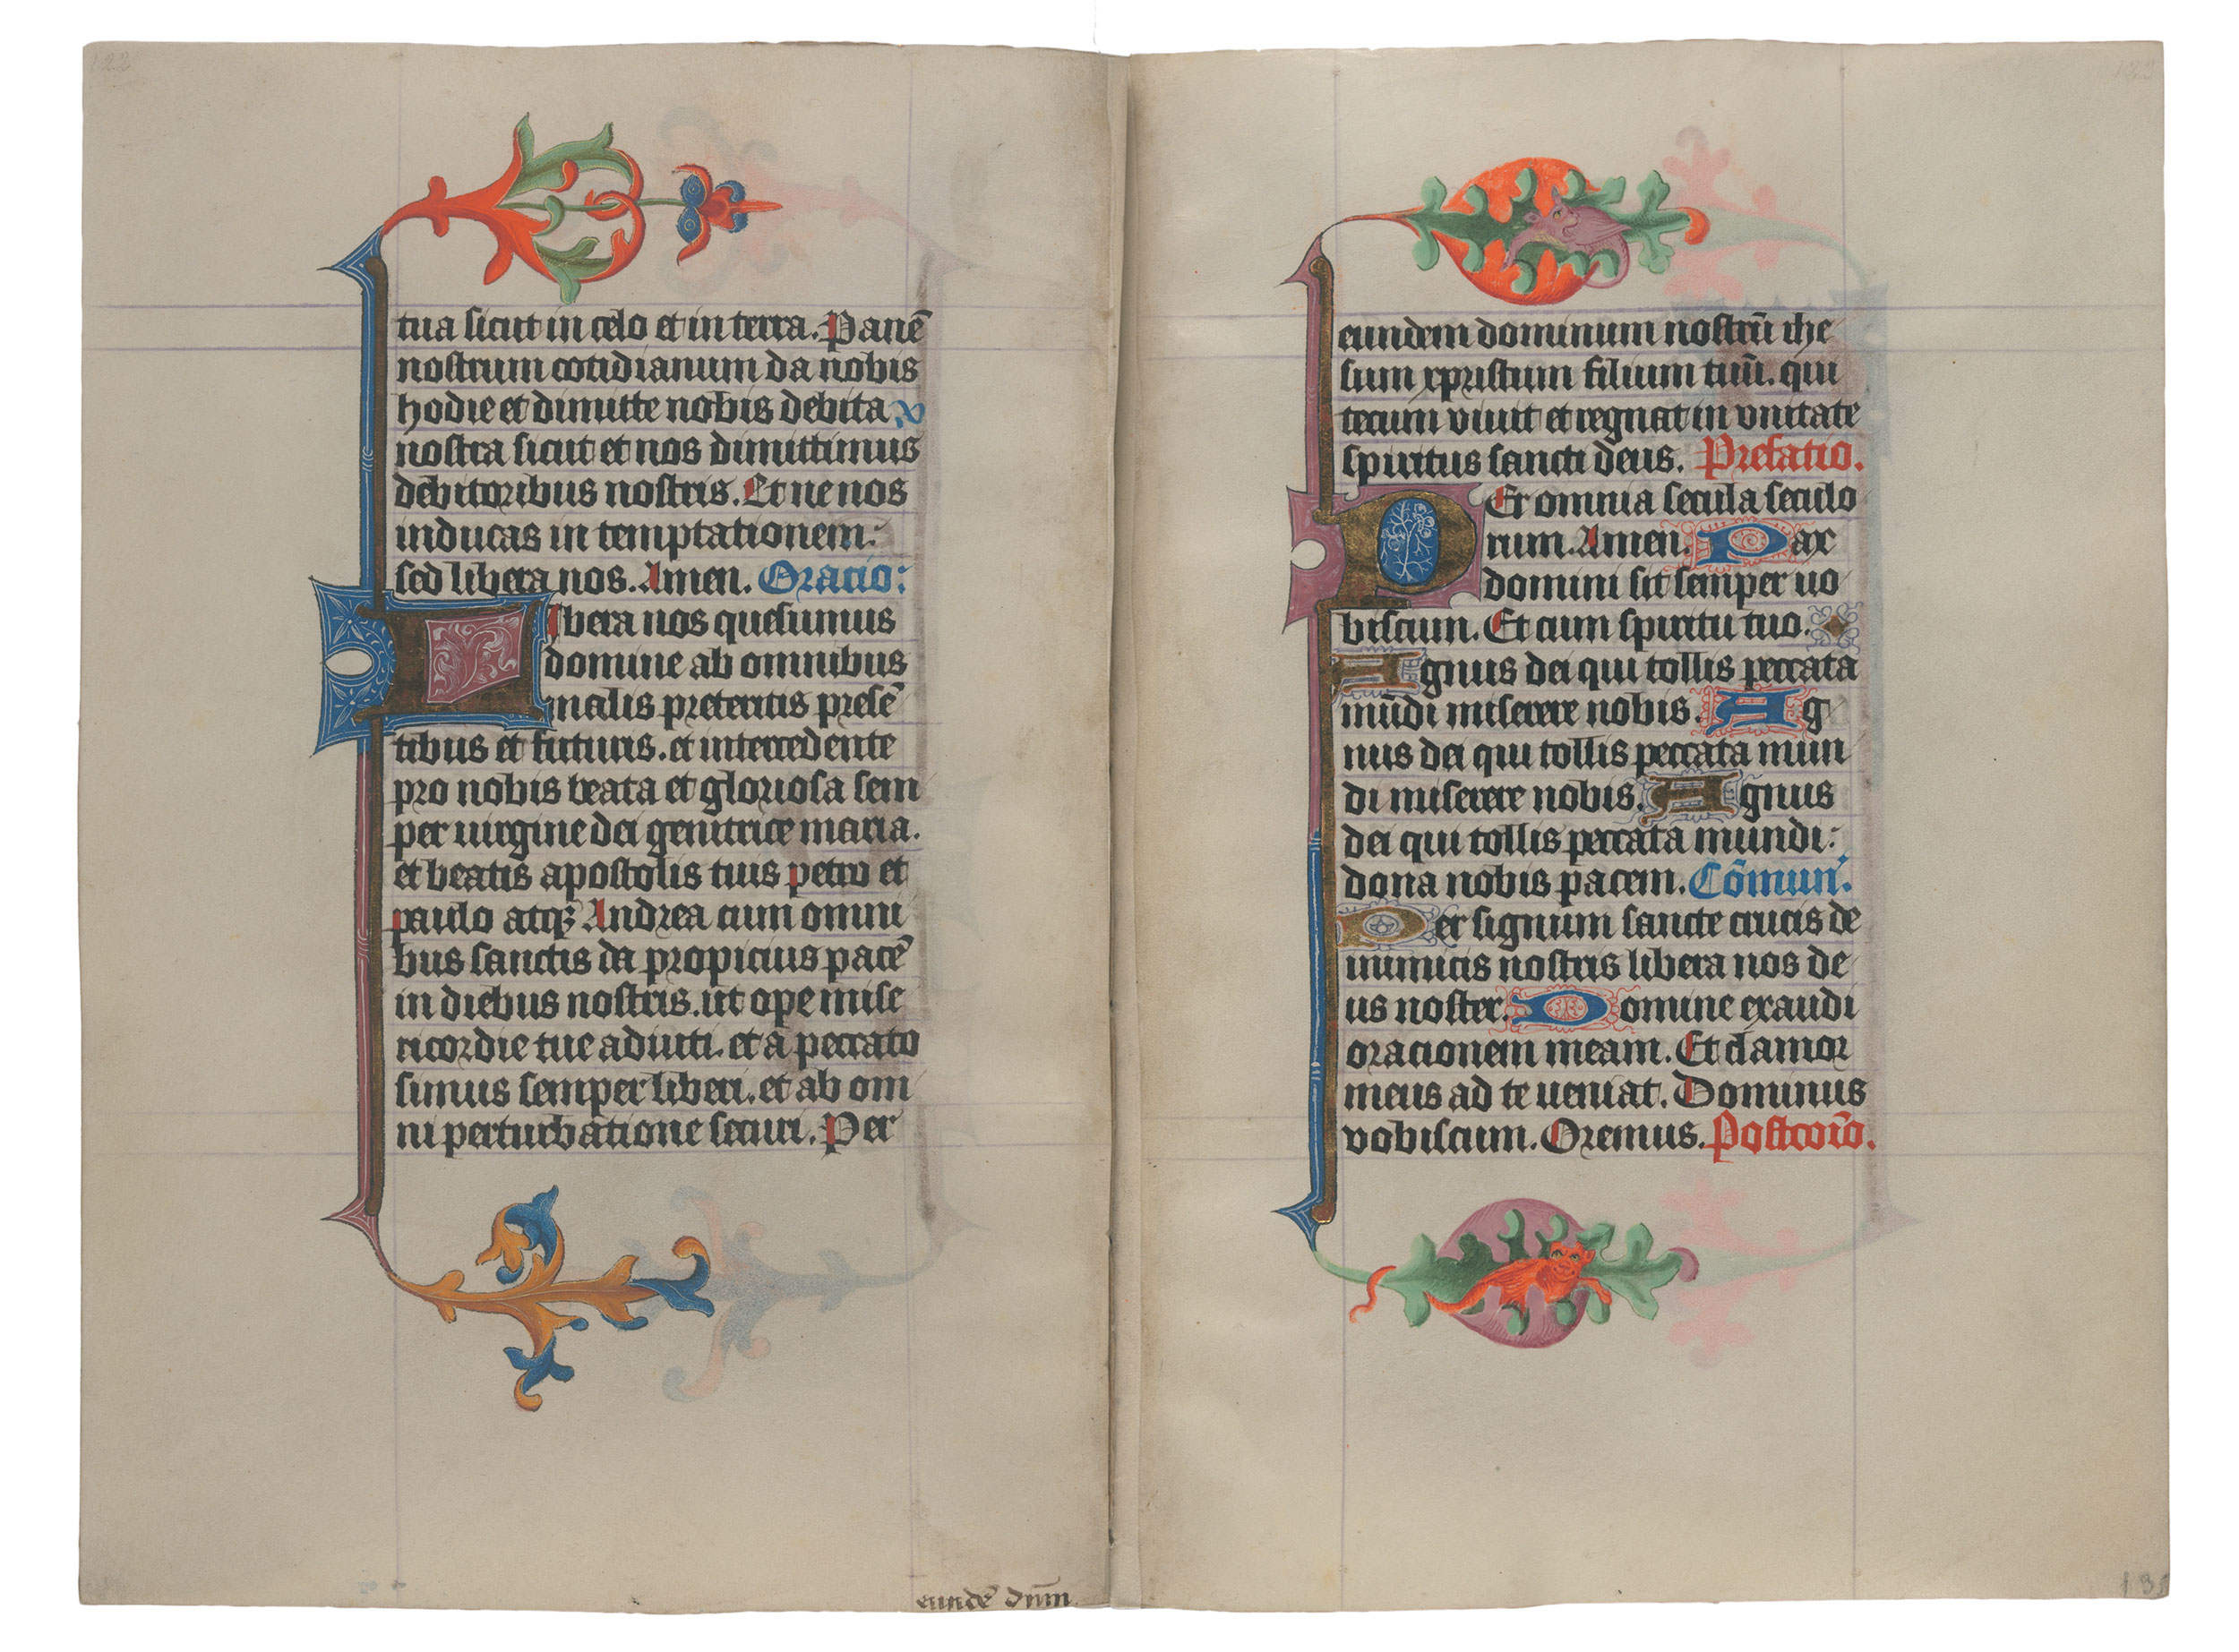 122
tua sicut in celo et in terra. Panē
nostrum cotidianum da nobis
hodie et dimitte nobis debita
nostra sicut et nos dimittimus
debitoribus nostris. Et ne nos
inducas in temptationem:
sed libera nos. Amen. Oratio:
Libera nos quesumus
domine ab omnibus
malis preteritis presē
tibus et futuris. et intercedente
pro nobis beata et gloriosa sem
per uirgine dei genitrice maria.
et beatis apostolis tuis petro et
paulo atqꝫ Andrea cum omni
bus sanctis da propicius pacē
in diebus nostris. ut ope mise
ricordie tue adiuti. et a peccato
simus semper liberi. et ab om
ni perturbatione securi. Per
eundē dnm̄
eundem dominum nostrū ihe
sum xpristum filium tuū. qui
tecum viuit et regnat in vnitate
spiritus sancti deus. Prefatio.
Per omnia secula seculo
rum. Amen. Pax
domini sit semper uo
biscum. Et cum spiritu tuo.
Agnus dei qui tollis peccata
mūdi miserere nobis. Ag
nus dei qui tollis peccata mun
di miserere nobis. Agnus
dei qui tollis peccata mundi:
dona nobis pacem. Cōmun.
Per signum sancte crucis de
inimicis nostris libera nos de
us noster. Domine exaudi
oracionem meam. Et clamor
meus ad te ueniat. Dominus
vobiscum. Oremus. Postcōio.